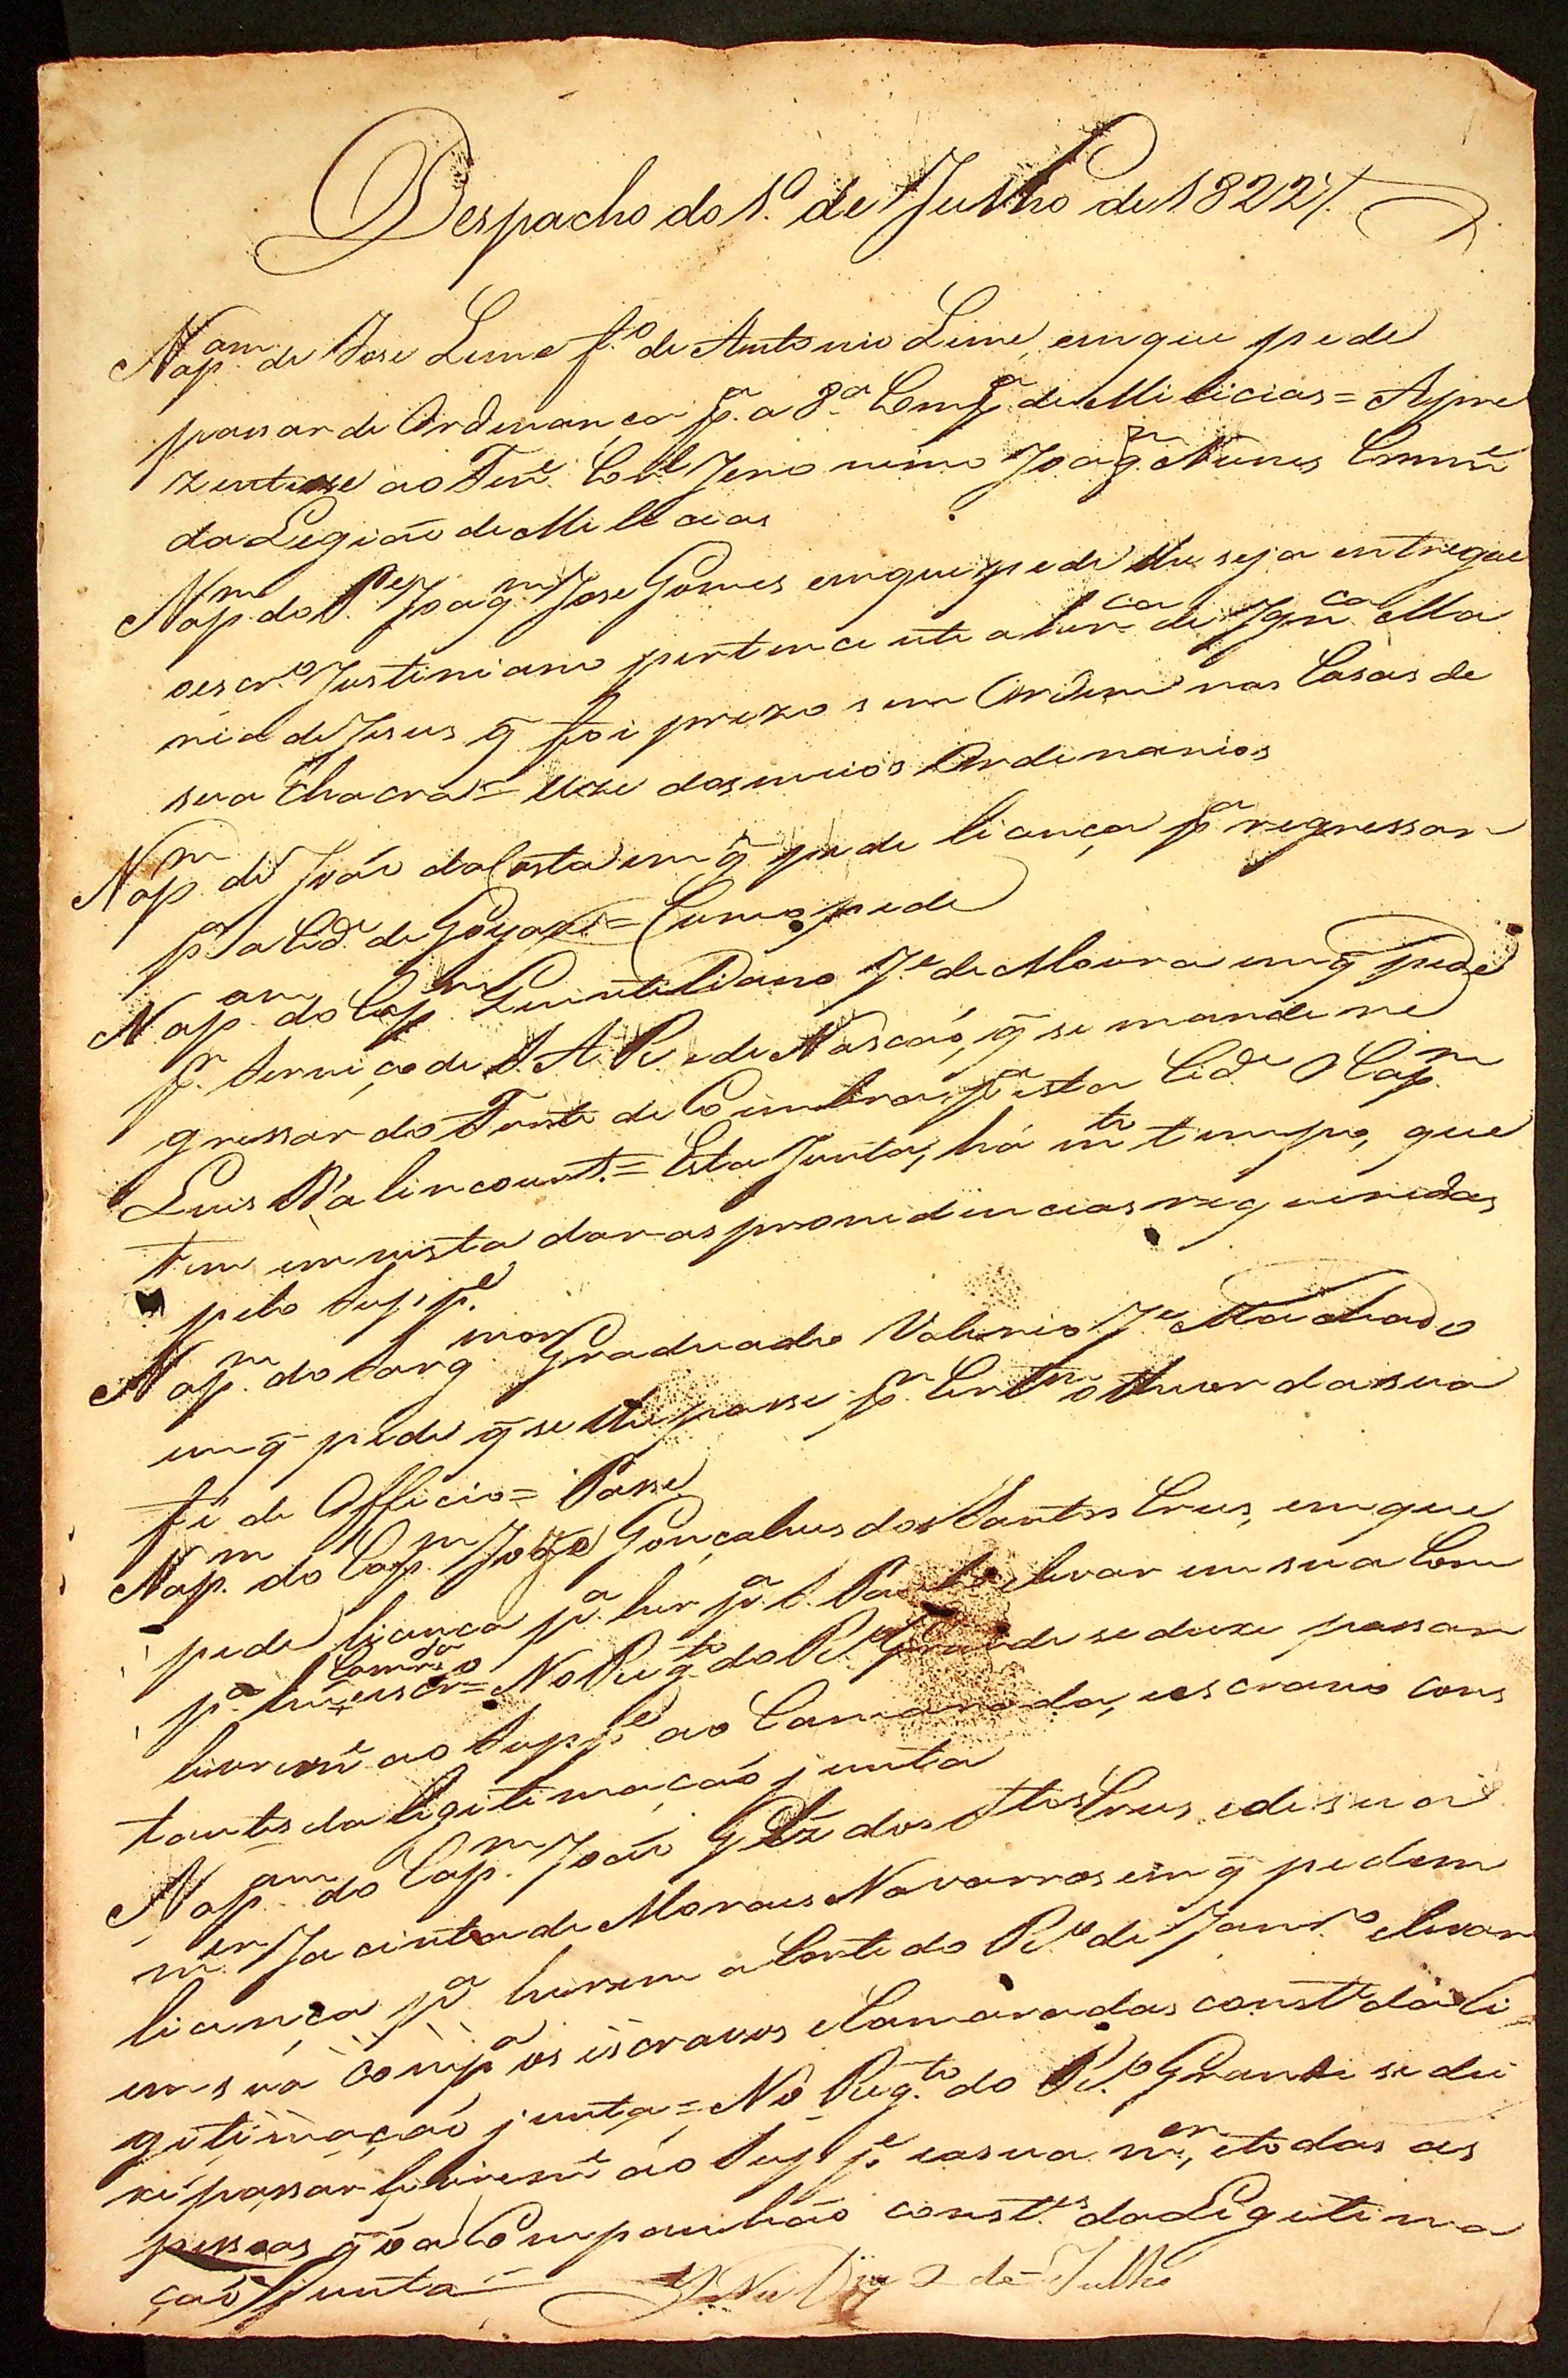 Despacho do 1.º de Julho de 1822//.
N ap.am de Jose Leme f.º de Antonio Leme, em que pede
passar de Ordenança p.a a 8.a Comp.a de Milicias = Apre
zente-se ao Ten.e Cor.el Jeronimo Joaq.m Nunes Comm.e
da Legião de Milicias
N ap.m do P.e Joaq.m Jose Gomes em que pede lhe seja entregue
o escr.º Justiniano pertencente a her.ca de Ign.ca Ma
ria de Jesus q̃ foi prezo sem Ordem nas Casas de
sua Chacra = Uze dos meios Ordinarios
N ap.m de João da Costa em q̃ pede licença p.a regressar
p.a a Cid.e de Goyaz = Como pede
N ap.am do Cap.m Quintiliano J.e de Moura em q̃ pede
p.r Serviço de S. A. R. e da Nação, q̃ se mande re
gressar do Forte de Coimbra p.a esta Cid.e o Cap.m
Luis D'alincourt. = Esta Junta, há m.to tempo, que
tem em vista dar as providencias requeridas
pelo Supp.e
N ap.m do Sarg. mor Graduado Valerio J.e Machado
em q̃ pede q̃ se lhe passe p.r Cert.m o theor da sua
fé de Officio = Passe
N ap.m do Cap.m João Gonçalves dos Santos Crus, em que
pede licença p.a hir p.a S. Paulo e levar em sua Com
p.a hũ Camr.da e escr.º = No Reg.to do R.º Grande se deixe passar
livrem.e ao Supp.e ao Camarada, e escravo cons
tantes da legitimação junta
N ap.am do Cap.m João Glz dos S.tos Crus, e de sua
m.er Jacinta de Moraes Navarros em q̃ pedem
licença p.a hirem a Corte do R.º de Janr.º e levar
em sua comp.a os escravos e Camaradas const.es da le
gitimação junta = No Reg.to do R.º Grande se dei
xe passar livrem.e ao Supp.e e a sua m.er, e todas as
pessoas q̃ o a Companhão const.es da Legitima
ção junta = No Dia 2 de Julho